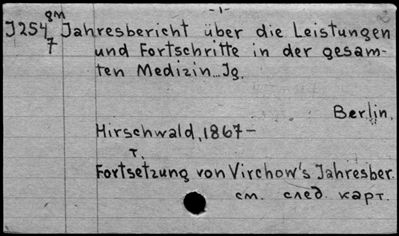 -1-
8м
J254 Jahresbericht über die Leistungen
7
und Fortschritte in der gesam-
ten Medizin... Jg.
Berlin,
Hirschwald, 1867-
т.
Fortsetzung von Virchow's Jahresber.
см. след. карт.